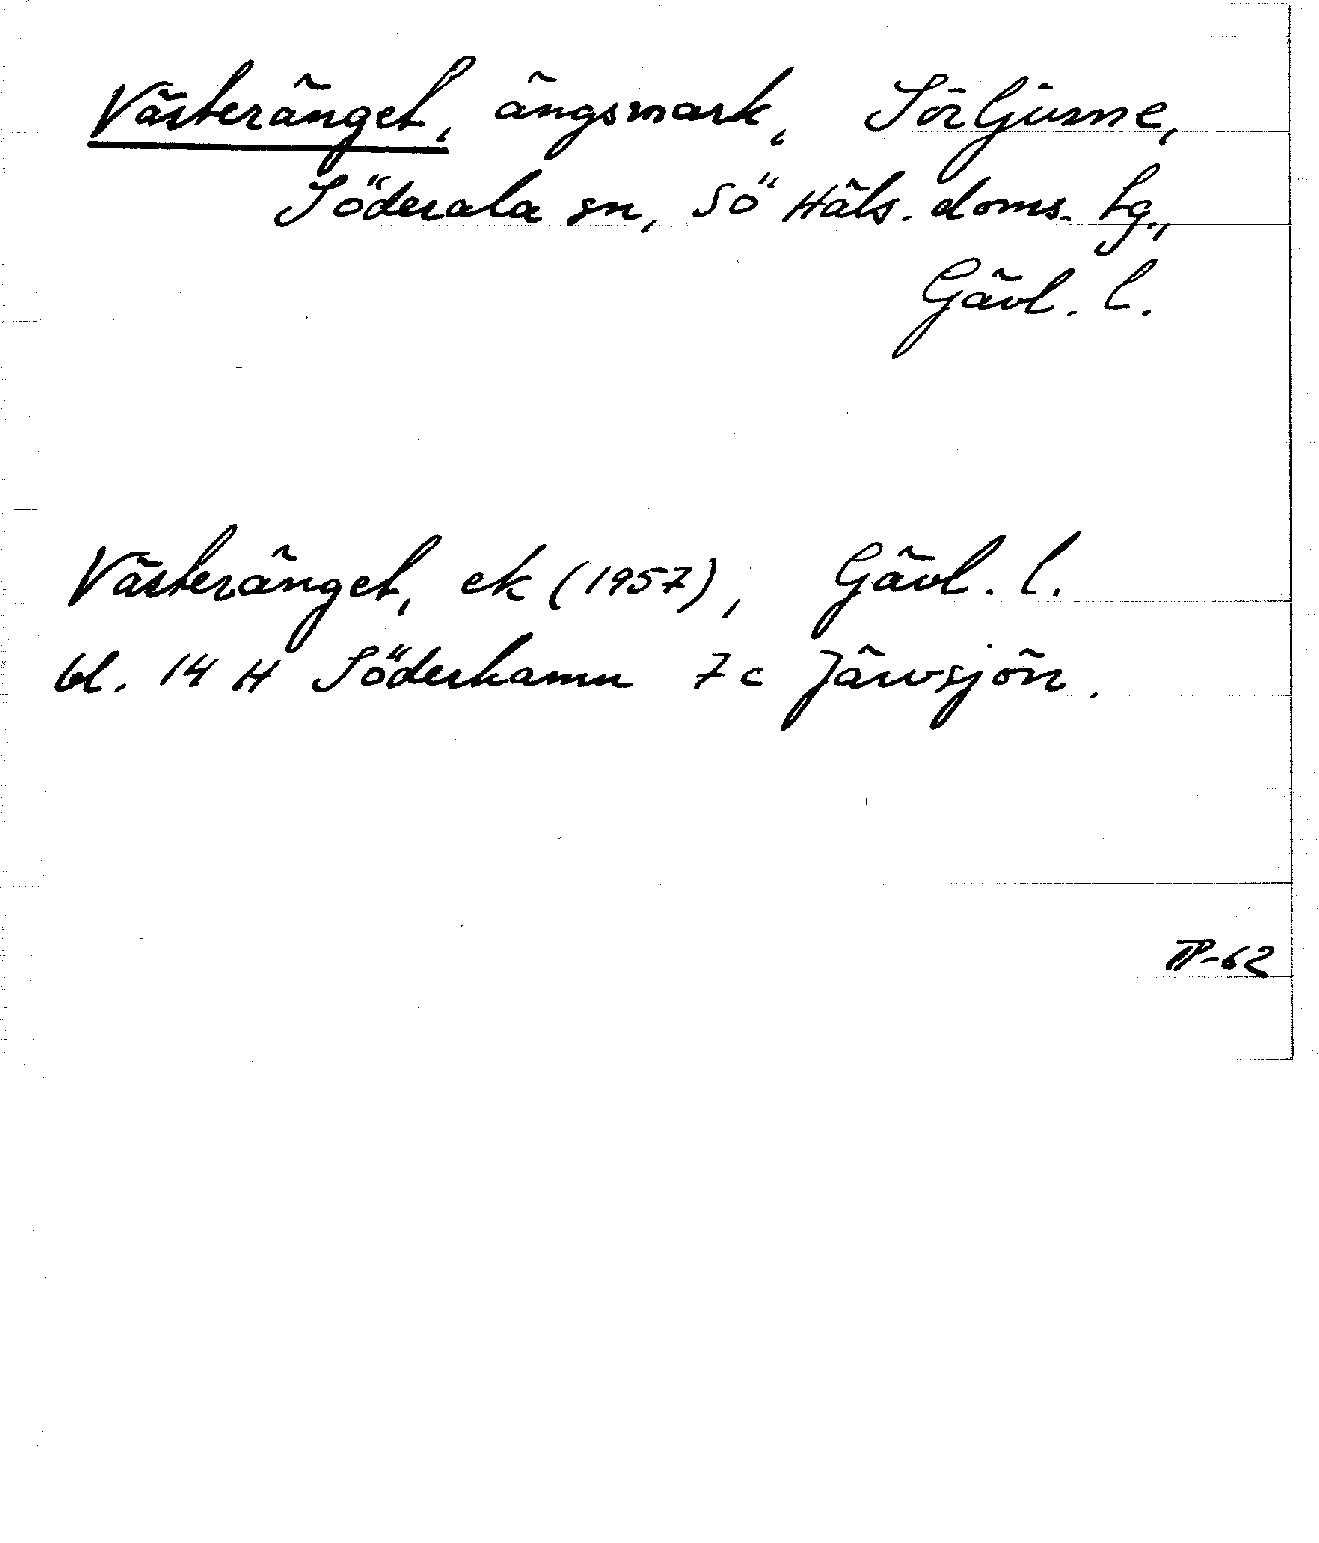 Västeränget, ängsmark, Sörljusne,
Söderala sn, SÖ Häls. doms. hg.,
Gävl. l.
Västeränget, ek (1957), Gävl. l.
bl. 14 H Söderhamn 7c Järvsjön.
TP-62